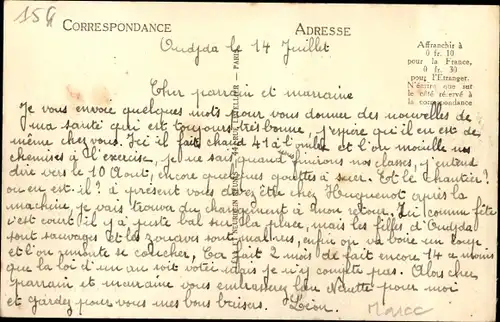 159
CORRESPONDANCE
ADRESSE
Affranchir à
0 fr. 10
pour la France,
0 fr. 30
pour l'Etranger.
N'écrire que sur
le côté réservé à
la correspondance
Oudjda le 14 Juillet
Cher parrain et marraine
Je vous envoie quelques mots pour vous donner des nouvelles de
ma santé qui est toujours très bonne, j'espère qu'il en est de
même chez vous. Ici il fait chaud 41 à l'ombre et on mouille nos
chemises à l'exercise, je ne sais quand finirons nos classes, j'entend
dire vers le 10 Août, encore quelques gouttes à suer. Et le chantier?
ou en est-il? à présent vous devez être chez Huguenot après la
machine, je vais trouva du changement à mon retour. Ici comme fête
c'est court il y a juste bal sur la place, mais les filles d'Oudjda
sont sauvages et les zouaves sont mal vus, enfin on va boire un coup
et l'on remonte se coucher, Ça fait 2 mois de fait encore 14 à moins
que la loi d'un an soit votée mais je n'y compte pas. Alors cher
parrain et marraine vous embrasserez bien Nénette pour moi
et gardez pour vous mes bons baisers. Léon.
Maroc